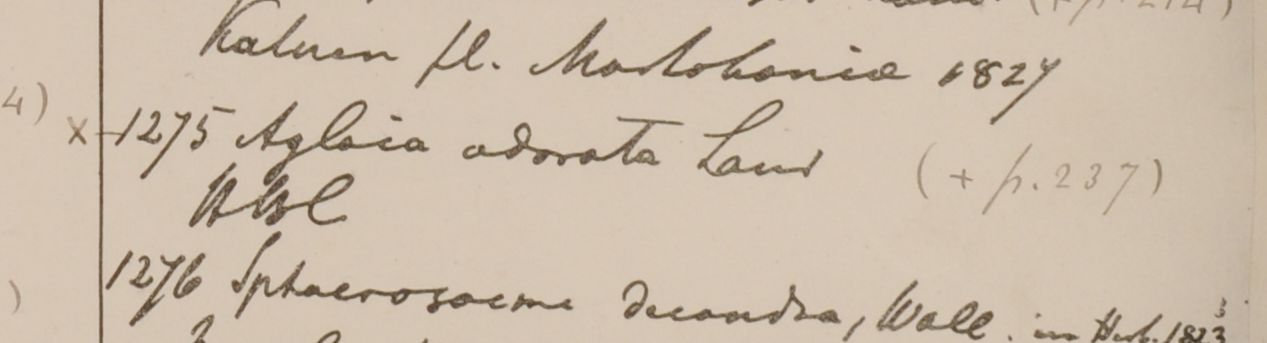 (+ p. 214)
Kaluen fl. Martabaniæ 1827
4) x 1275 Aglaia odorata Lour (+ p. 237)
HBC
1276 Sphaerosacme decandra, Wall. in Herb. 1823
)